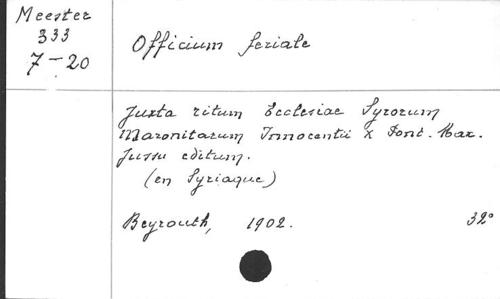 Meester
333
7-20
Officium feriale
Juxta ritum Ecclesiae Syrorum
Maronitarum Innocentii X Pont. Max.
Jussu editum.
(en Syriaque)
Beyrouth, 1902. 32°